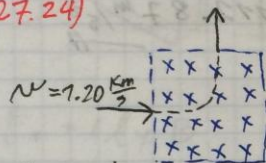 27.24)
v = 1.20 km/s
x x x x
x x x x
x x x x
x x x x